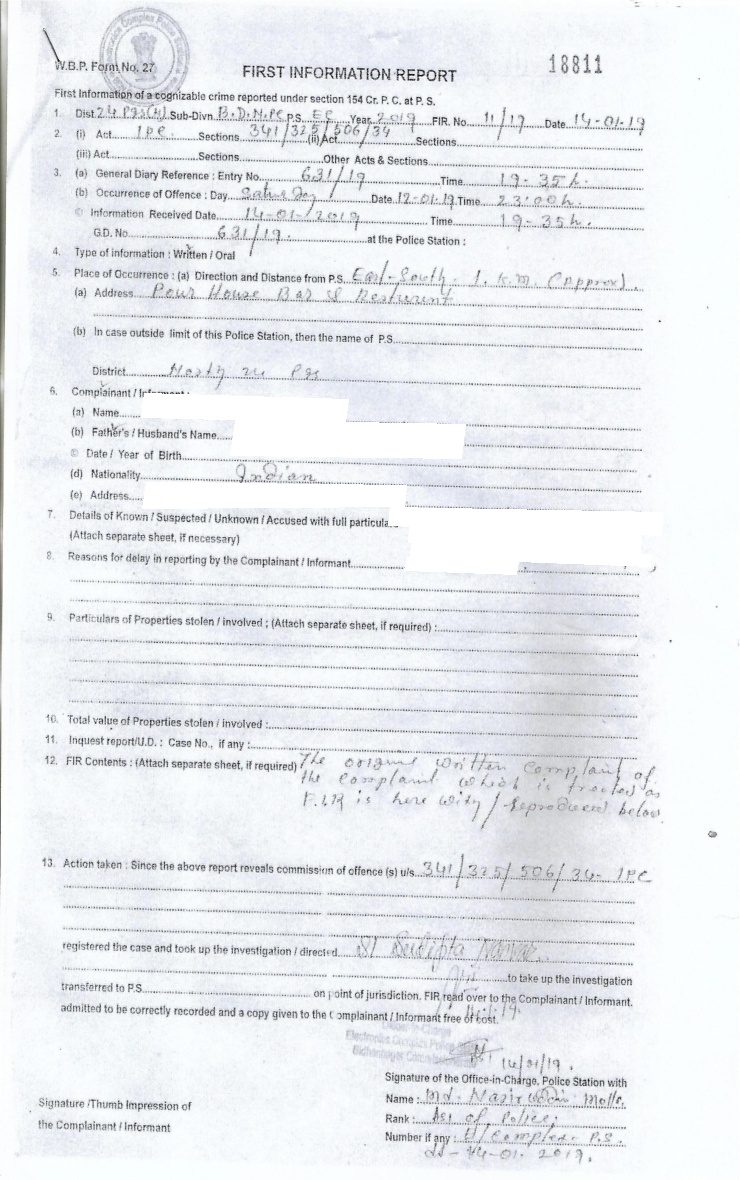 W.B.P. Form No. 27
18811
FIRST INFORMATION REPORT
First Information of a cognizable crime reported under section 154 Cr. P. C. at P. S.
1. Dist. 24 Pgs(N) Sub-Divn. B.D.N.PC P.S. EC Year 2019 FIR. No. 11/19 Date 14-01-19
2. (i) Act IPC Sections 341/325/506/34 (ii) Act Sections
(iii) Act Sections Other Acts & Sections
3. (a) General Diary Reference : Entry No. 631/19 Time 19-35 h.
(b) Occurrence of Offence : Day Saturday Date 12-01-19 Time 23:00 h.
© Information Received Date 14-01-2019 Time 19-35 h.
G.D. No. 631/19. at the Police Station :
4. Type of information : Written / Oral
5. Place of Occurrence : (a) Direction and Distance from P.S. East-South. 1. K.M. (Approx)
(a) Address Pour House Bar & Resturent
(b) In case outside limit of this Police Station, then the name of P.S.
District North 24 Pgs
6. Complainant /
(a) Name
(b) Father's / Husband's Name
© Date / Year of Birth
(d) Nationality Indian
(e) Address
7. Details of Known / Suspected / Unknown / Accused with full particula
(Attach separate sheet, if necessary)
8. Reasons for delay in reporting by the Complainant / Informant
9. Particulars of Properties stolen / involved ; (Attach separate sheet, if required) :
10. Total value of Properties stolen / involved :
11. Inquest report/U.D. : Case No., if any :
12. FIR Contents : (Attach separate sheet, if required) The original written complaint of
the complaint which is treated as
F.I.R is here with / reproduced below
13. Action taken : Since the above report reveals commission of offence (s) u/s. 341/325/506/34 IPC
registered the case and took up the investigation / directed SI
to take up the investigation
transferred to P.S. on point of jurisdiction. FIR read over to the Complainant / Informant.
admitted to be correctly recorded and a copy given to the Complainant / Informant free of cost.
14/01/19.
Signature of the Office-in-Charge, Police Station with
Name : Md. Nazir Uddin Molla
Signature /Thumb Impression of
Rank : ASI of Police
the Complainant / Informant
Number if any : E/Complex P.S.
14-01-2019.